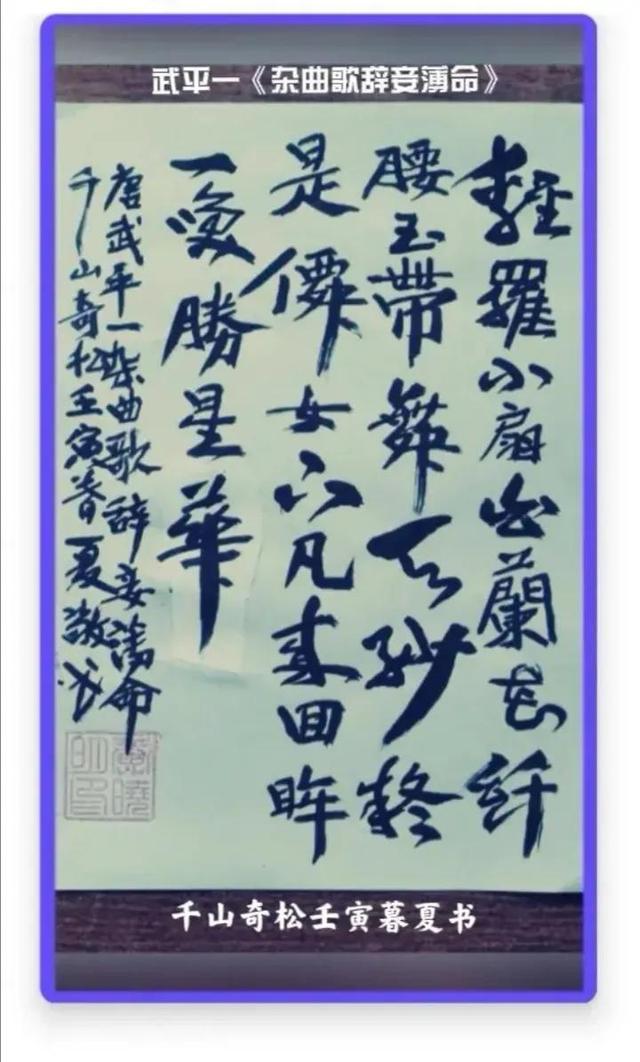 武平一《杂曲歌辞妾薄命》
輕羅小扇白蘭花纖
腰玉帶舞天紗疑
是僊女下凡来回眸
一咲勝星華
唐武平一杂曲歌辞妾薄命
千山奇松壬寅暮夏敬书
千山奇松壬寅暮夏书